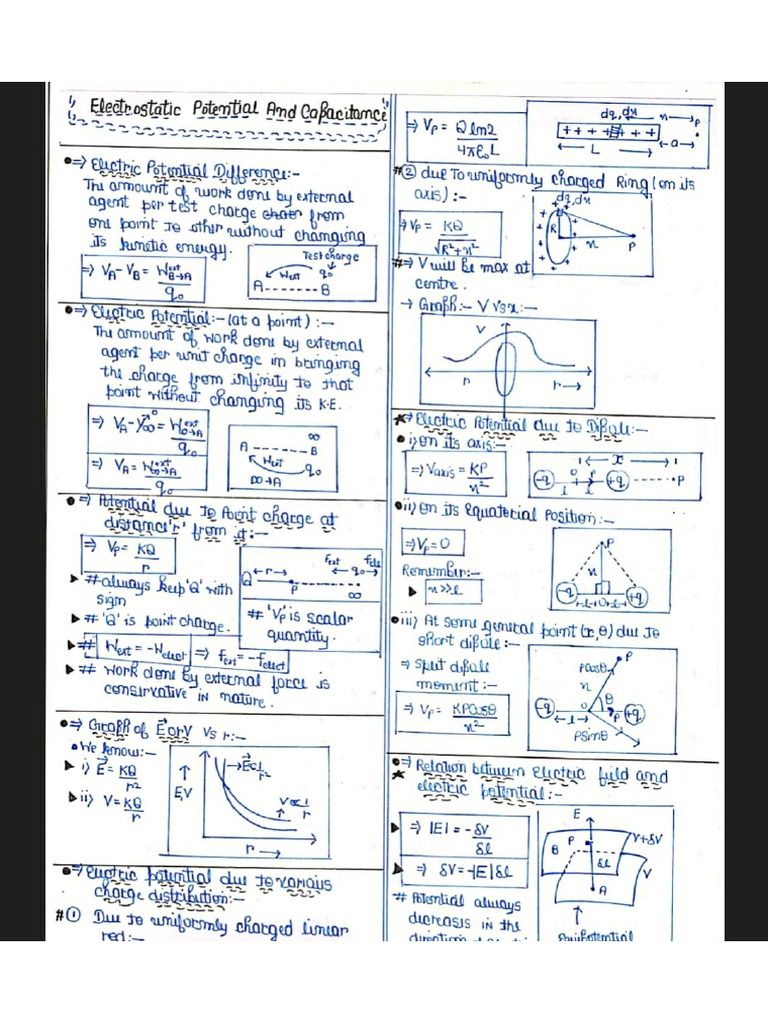 Electrostatic Potential And Capacitance
⇒ Electric Potential Difference:-
The amount of work done by external
agent per test charge from
one point to other without changing
its kinetic energy.
⇒ VA-VB = WextB→A/q0
Test charge
q0
Wext
A ------- B
⇒ Electric Potential:- (at a point) :-
The amount of work done by external
agent per unit charge in bringing
the charge from infinity to that
point without changing its K.E.
⇒ VA-V∞→0 = Wext∞→A/q0
⇒ VA = Wext∞→A/q0
∞
A ------- B
Wext q0
∞→A
⇒ Potential due to Point charge at
distance 'r' from it:-
⇒ VP = KQ/r
# always keep 'Q' with
sign
# 'Q' is point charge.
fext fele
Q ← r → q0
P ∞
# 'VP' is scalar
quantity.
# Wext = -Welect ⇒ fext = -felect
# Work done by external force is
conservative in nature.
⇒ Graph of E or V vs r:-
We know:-
i) E = KQ/r²
ii) V = KQ/r
E∝1/r²
E,V
V∝1/r
r →
⇒ Electric potential due to various
charge distribution:-
# ① Due to uniformly charged linear
rod:-
⇒ VP = Q ln2/4πε0L
dq, dx x P
+ + + + + + +
← L → ← a →
# ② due to uniformly charged Ring (on its
axis) :-
⇒ VP = KQ/√R²+x²
dq, dx
R x P
# ⇒ V will be max at
centre.
→ Graph:- V vs x:-
V
r r →
⇒ Electric Potential due to Dipole:-
i) on its axis:-
⇒ Vaxis = KP/x²
← x →
-q O P +q ------ P
l l
ii) on its Equatorial Position:-
⇒ VP = 0
Remember:-
x>>l
P
x
-q l O l +q
iii) At some general point (r,θ) due to
short dipole:-
⇒ split dipole
moment:-
⇒ VP = KPCosθ/x²
P
PCosθ
x
θ
-q ← l → O P +q
PSinθ
⇒ Relation between Electric field and
electric potential:-
⇒ |E| = -δV/δl
⇒ δV = -|E|δl
# Potential always
decreases in the
E
P
B δl
V+δV
V
A